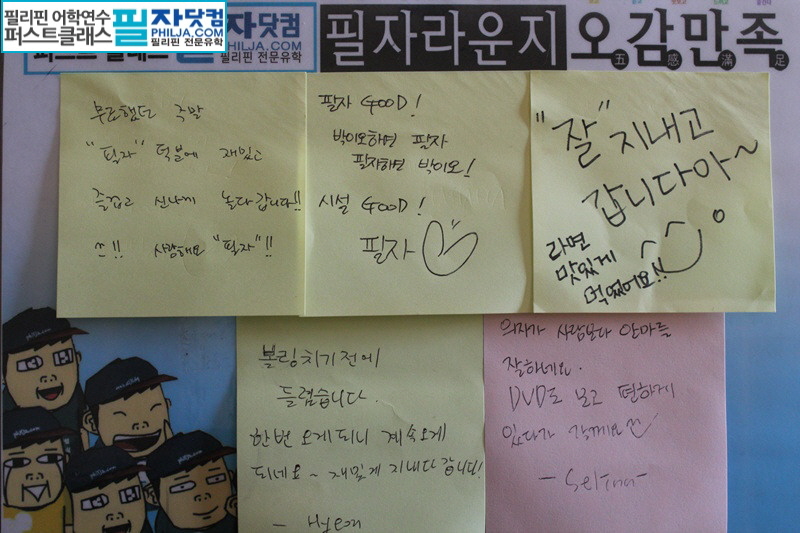 필리핀 어학연수
퍼스트클래스
필자닷컴
PHILJA.COM
필리핀 전문유학
자닷컴
PHILJA.COM
필리핀 전문유학
필자라운지
오감만족
五 感 滿 足
무료했던 주말
"필자" 덕분에 재밌고
즐겁고 신나게 놀다갑니다!!
쓰!! 사랑해요 "필자"!!
필자 GOOD!
바이오하면 필자
필자하면 바이오!
시설 GOOD!
필자
"잘" 지내고
갑니다아~
라면
맛있게
먹었어요!!
볼링치기전에
들렸습니다.
한번 오게되니 계속오게
되네요~ 재밌게 지내다 갑니다!
의자가 사람보다 안마를
잘하네요.
DVD도 보고 편하게
있다가 갈께요